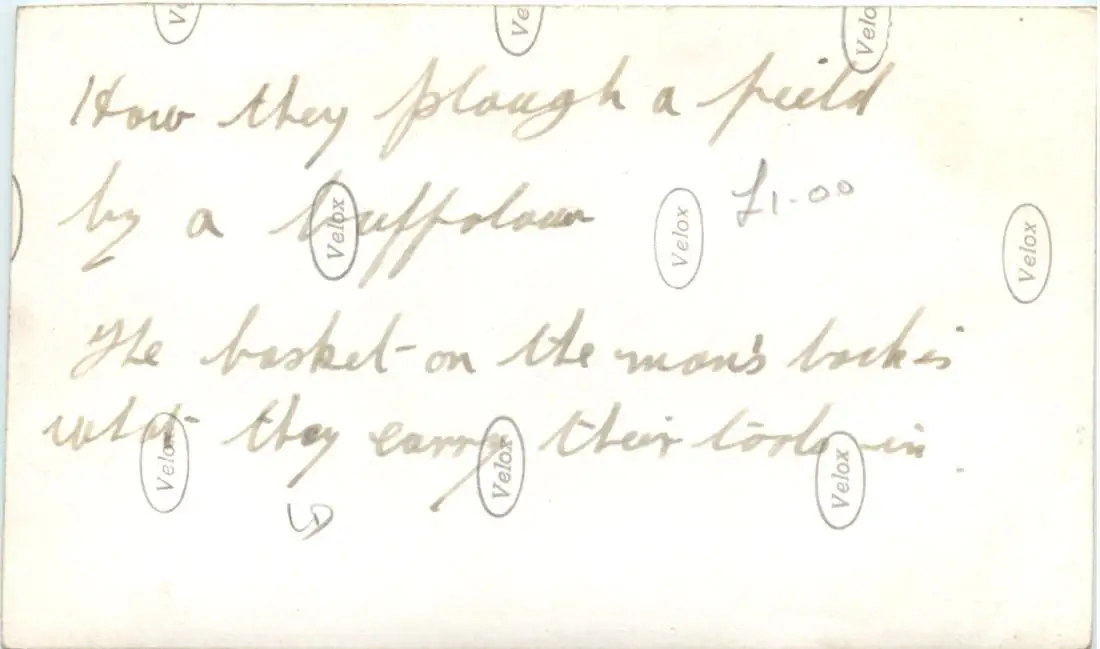 Velox Velox Velox
How they plough a field
by a buffolow £1-00
Velox Velox Velox
The basket on the man's back is
what they carry their tools in
Velox Velox Velox